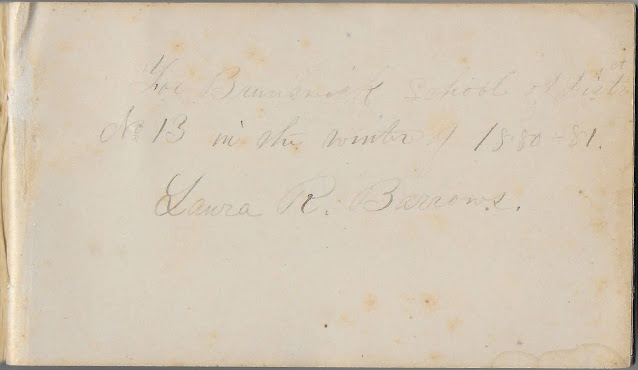 For Brunswick School at Dist
No 13 in the winter of 1880-81.
Laura R. Barrows.